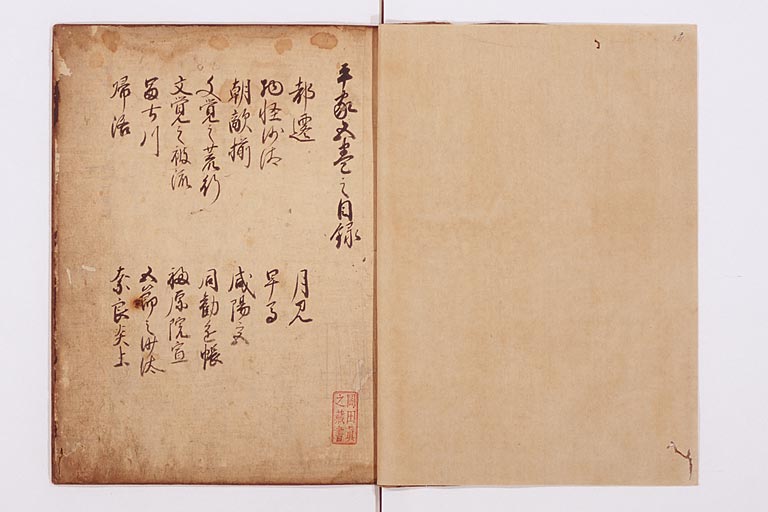 平家五巻之目録
都遷 月見
物怪沙汰 早馬
朝敵揃 咸陽宮
文覚之荒行 同勧進帳
文覚之被流 福原院宣
富士川 五節之沙汰
帰洛 奈良炎上
岡田眞
之蔵書